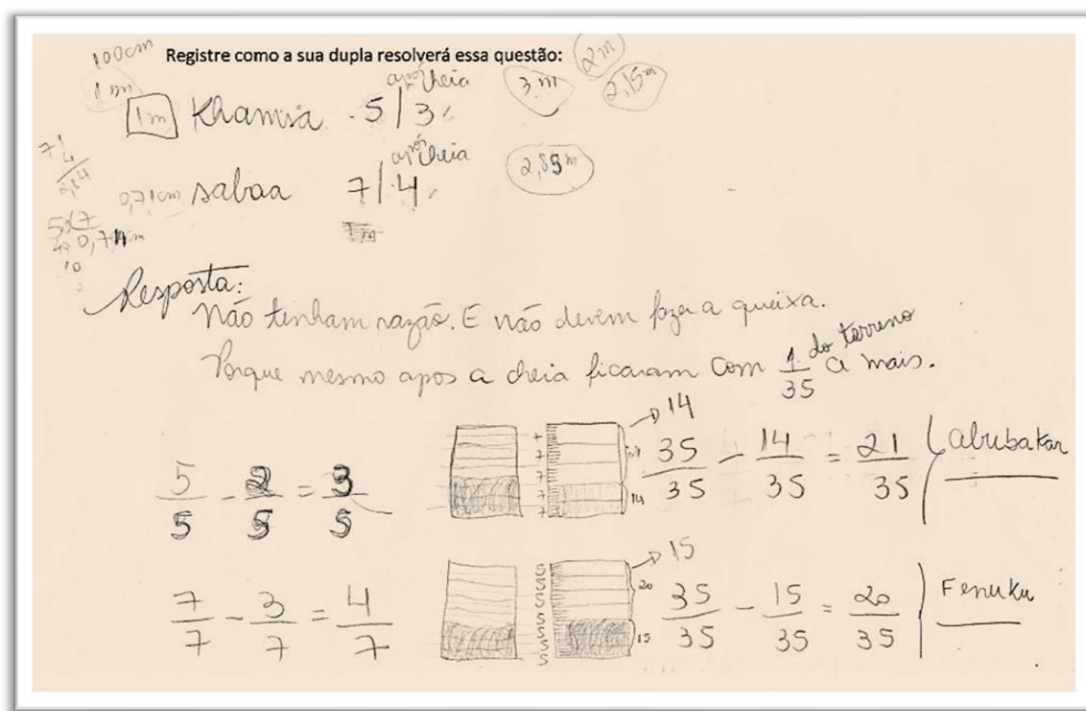 Registre como a sua dupla resolverá essa questão:
100cm
1m
2m
3m
2,15m
após cheia
1m Khamsa . 5/3
após cheia
0,71cm sabaa 7/4
2,89m
1m
Resposta:
Não tenham razão. E não devem fazer a queixa.
Porque mesmo apos a cheia ficaram com 1/35 do terreno a mais.
5/5 - 2/5 = 3/5
7
7
7
7
7
14
→ 14
35/35 - 14/35 = 21/35 Abubakar
7/7 - 3/7 = 4/7
5
5
5
5
5
5
5
20
15
→ 15
35/35 - 15/35 = 20/35 Fenuku